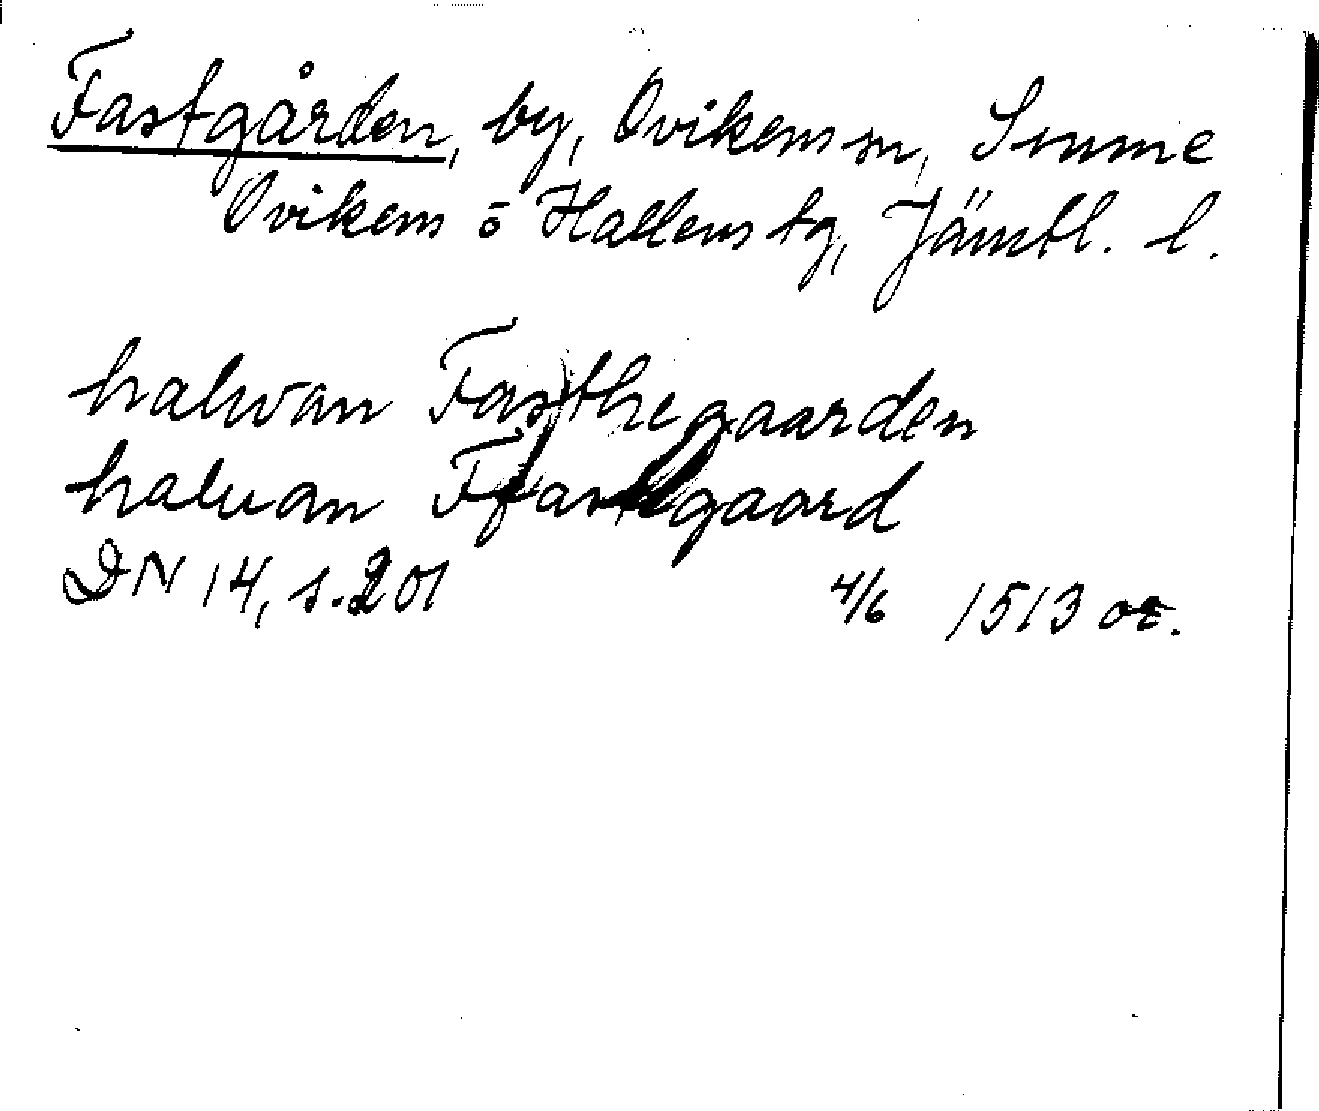 Fastgården, by, Ovikens sn, Sunne
Ovikens o Hallens tg, Jämtl. l.
halwan Fasthegaarden
haluan Ffastgaard
DN 14, s. 201 4/6 1513 or.